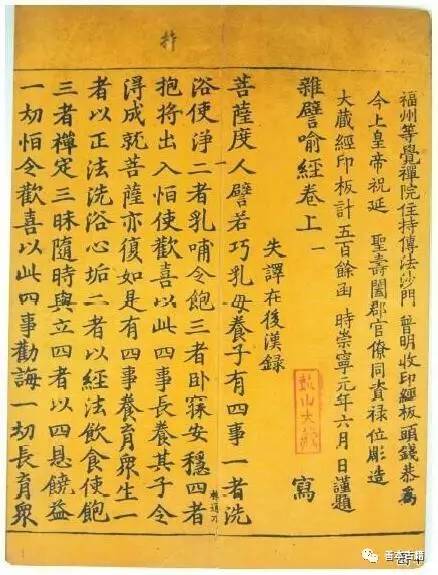 福州等覺禪院住持傳法沙門 普明收印經板頭錢恭為
今上皇帝祝延 聖壽闔郡官僚同資祿位彫造
大藏經印板計五百餘函 時崇寧元年六月 日謹題
雜譬喻經卷上 一 寫
失譯在後漢錄
鼓山大藏
菩薩度人譬若巧乳母養子有四事一者洗
浴使淨二者乳哺令飽三者臥寐安穩四者
抱將出入怕使歡喜以此四事長養其子令
淂成就菩薩亦復如是有四事養育眾生一
者以正法洗浴心垢二者以經法飲食使飽
三者禪定三昧隨時與立四者以四恩饒益
一切怕令歡喜以此四事勸誨一切長育眾
林通刀
善本古籍